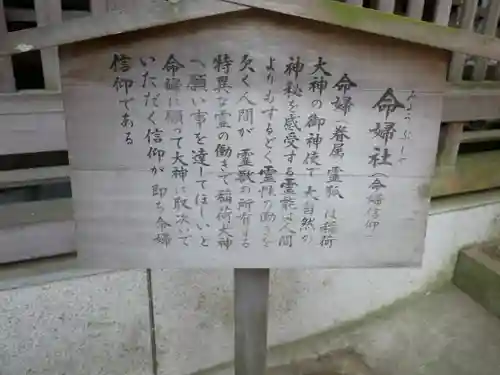 命婦社(命婦信仰)
みょうぶしゃ
命婦(眷属 霊狐)は稲荷
大神の御神使で大自然の
神秘を感受する霊能は人間
よりもするどく霊性の働きを
欠く人間が 霊獣の所有する
特異な霊の働きで稲荷大神
へ願い事を達してほしいと
命婦に願って大神に取次いで
いただく信仰が即ち命婦
信仰である